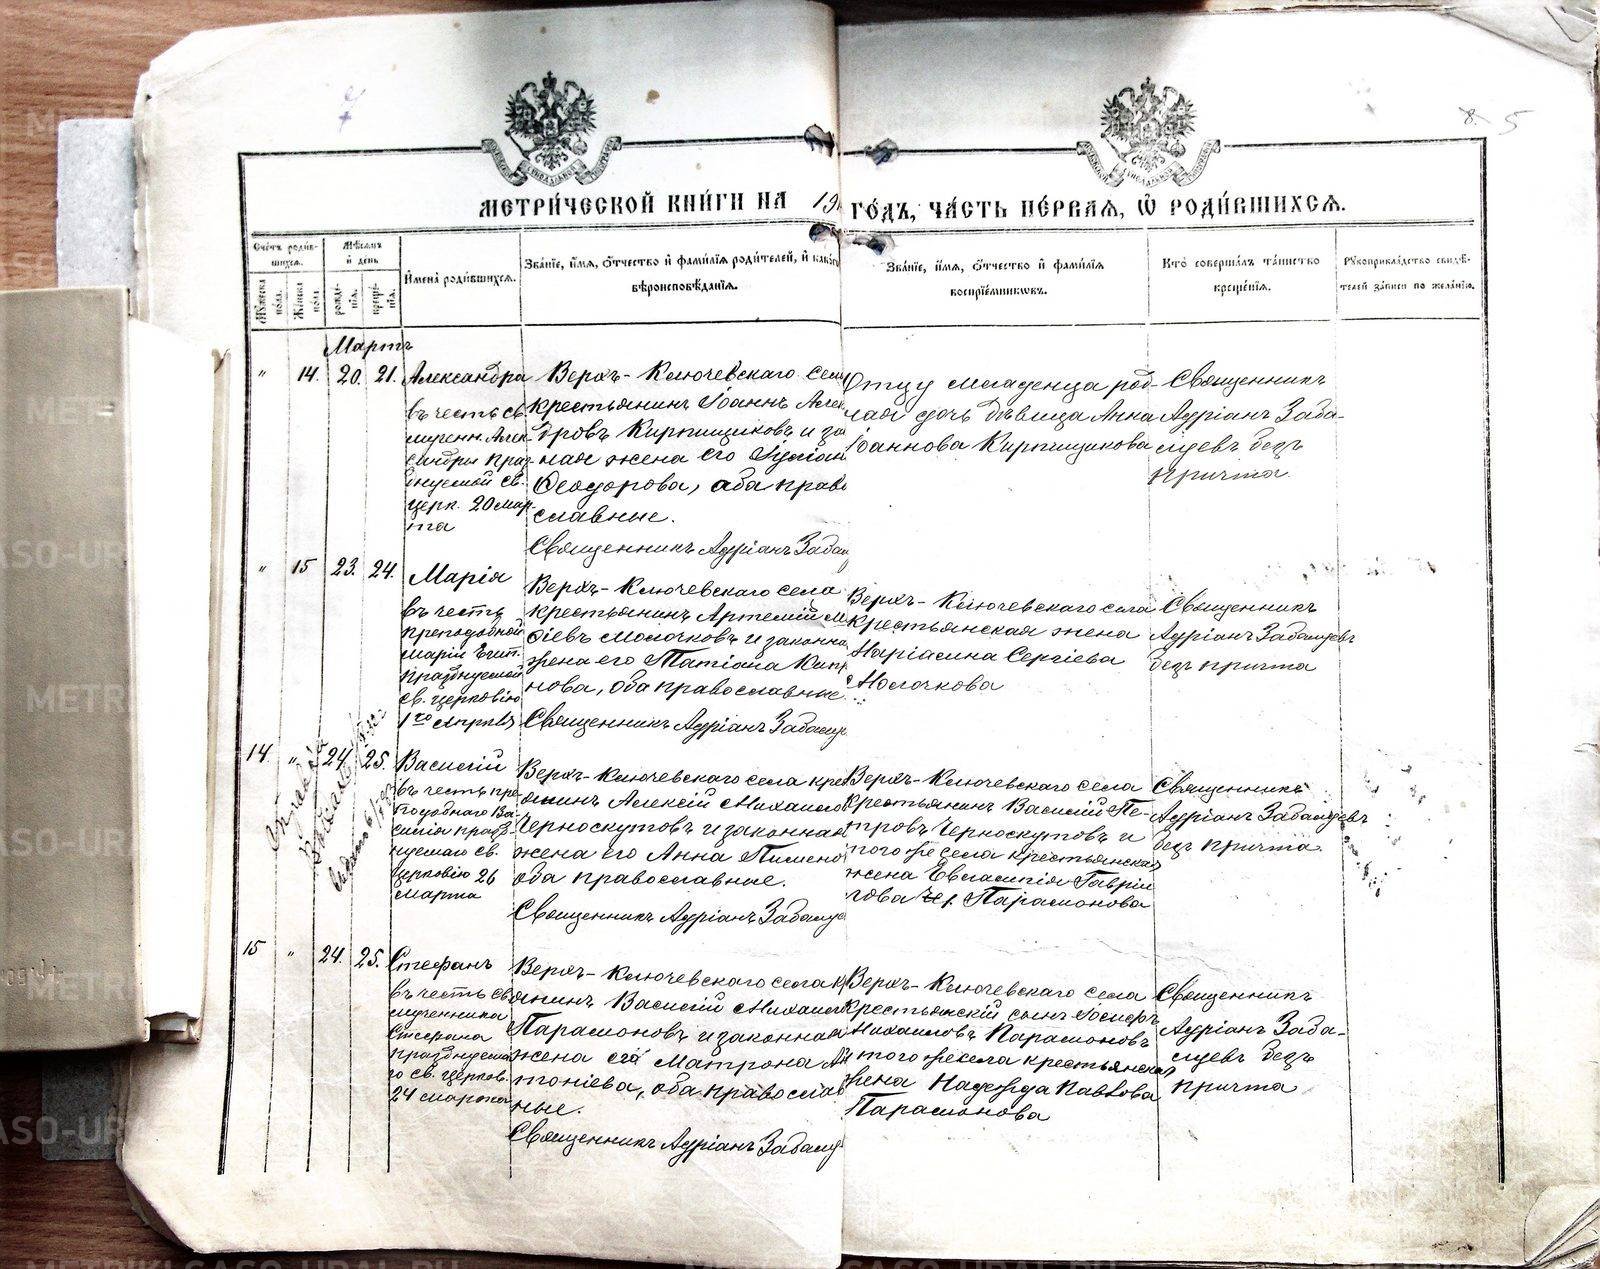 8. 5
МЕТРИ́ЧЕСКОЙ КНИ́ГИ НА 19
ГО́ДЪ, ЧА́СТЬ ПЕ́РВАЯ, Ѽ РОДИ́ВШИХСЯ.
Сче́тъ роди́в-
шихся.
Мѣ́сяцъ
и҆ день
Му́жеска пол.
Же́нска пол.
рожде-
нїя.
креще-
нїя.
И҆мена̀ роди́вшихся.
Зва́нїе, и҆́мя, ѻ҆́тчество и҆ фами́лїя роди́телей, и҆ како́гѡ
вѣроисповѣ́данїя.
Зва́нїе, и҆́мя, ѻ҆́тчество и҆ фами́лїя
воспрїе́мниковъ.
Кто̀ соверша́лъ та́инство
креще́нїя.
Рукоприкла́дство свидѣ́-
телей за́писи по жела́нїю.
Мартъ
" 14. 20. 21.
Александра
въ честь св.
мучен. Алек-
сандры праз-
днуемой св.
церк. 20 мар-
та
Верхъ-Ключевскаго села
крестьянинъ Іоаннъ Алекс
дровъ Кирпищиковъ и зако
ная жена его
Ѳеодорова, оба право
славные.
Священникъ Адріанъ Забал
Отцу младенца род-
ная дочь дѣвица Анна
Іоаннова Кирпищикова
Священникъ
Адріанъ Заба-
луевъ безъ
причта.
" 15 23. 24.
Марія
въ честь
преподобной
Маріи Егип.
празднуемой
св. церковію
1го Апрѣля
Верхъ-Ключевскаго села
крестьянинъ Артемій М
ѳіевъ Молочковъ и законна
жена его Татіана Кип
нова, оба православные
Священникъ Адріанъ Забалуе
Верхъ-Ключевскаго села
крестьянская жена
Маріамна Сергіева
Молочкова
Священникъ
Адріанъ Забалуевъ
безъ причта
14. " 24. 25.
Василій
въ честь пре-
подобнаго Ва-
силія празд-
нуемаго св.
церковію 26
марта
Верхъ-Ключевскаго села крес
янинъ Алексій Михаило
Черноскутовъ и законная
жена его Анна Пимено
оба православные.
Священникъ Адріанъ Забалуе
Верхъ-Ключевскаго села
крестьянинъ Василій Пе-
тровъ Черноскутовъ и
того же села крестьянская
жена Евлампія Гаврiи
лова Парамонова
Священникъ
Адріанъ Забалуевъ
безъ причта.
15 " 24. 25.
Стефанъ
въ честь свя
мученника
Стефана
празднуема
го св. церков.
24 марта
Верхъ-Ключевскаго села к
янинъ Василій Михаило
Парамоновъ и законная
жена его Матрона Ан
тоніева, оба православ
ные.
Священникъ Адріанъ Забалуе
Верхъ-Ключевскаго села
крестьянскій сынъ Іосифъ
Михаиловъ Парамоновъ
и того же села крестьянская
жена Надежда Павлова
Парамонова
Священникъ
Адріанъ Заба-
луевъ безъ
причта